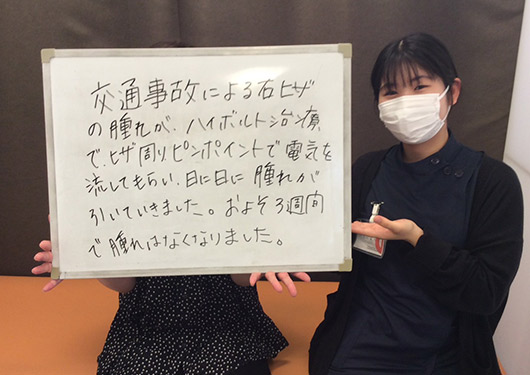 交通事故による右ヒザ
の腫れが、ハイボルト治療
で、ヒザ周りピンポイントで電気を
流してもらい、日に日に腫れが
引いていきました。およそ3週間
で腫れはなくなりました。